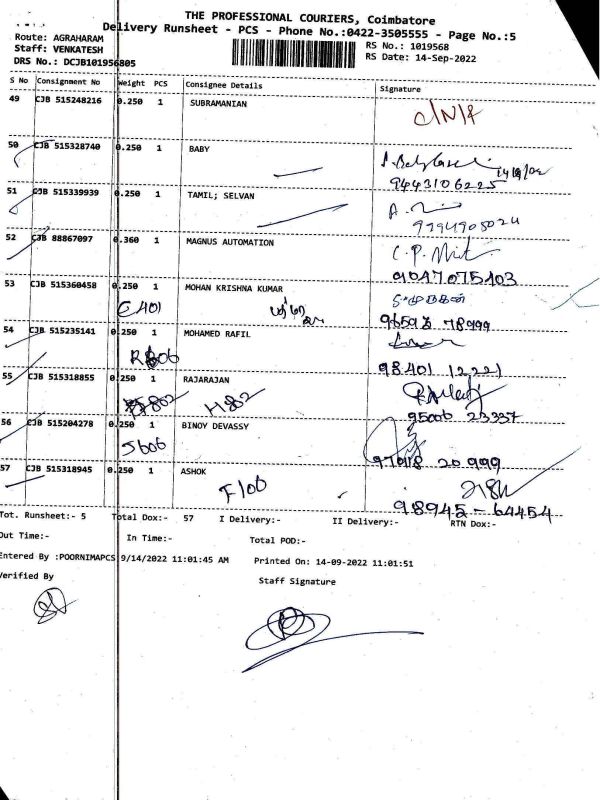 THE PROFESSIONAL COURIERS, Coimbatore
Delivery Runsheet - PCS - Phone No.:0422-3505555 - Page No.:5
Route: AGRAHARAM
RS No.: 1019568
Staff: VENKATESH
RS Date: 14-Sep-2022
DRS No.: DCJB101956805
S No Consignment No Weight PCS Consignee Details Signature
49 CJB 515248216 0.250 1 SUBRAMANIAN
C/N/R
50 CJB 515328740 0.250 1 BABY
9443106225
51 CJB 515339939 0.250 1 TAMIL; SELVAN
9794905024
52 CJB 88867097 0.360 1 MAGNUS AUTOMATION
9047075403
53 CJB 515360458 0.250 1 MOHAN KRISHNA KUMAR
E401
54 CJB 515235141 0.250 1 MOHAMED RAFIL
98401 12221
55 CJB 515318855 0.250 1 RAJARAJAN
H802
95006 23357
56 CJB 515204278 0.250 1 BINOY DEVASSY
J606
97918 20999
57 CJB 515318945 0.250 1 ASHOK
F106
98945-64454
Tot. Runsheet:- 5 Total Dox:- 57 I Delivery:- II Delivery:- RTN Dox:-
Out Time:- In Time:- Total POD:-
Entered By :POORNIMAPCS 9/14/2022 11:01:45 AM Printed On: 14-09-2022 11:01:51
Verified By Staff Signature